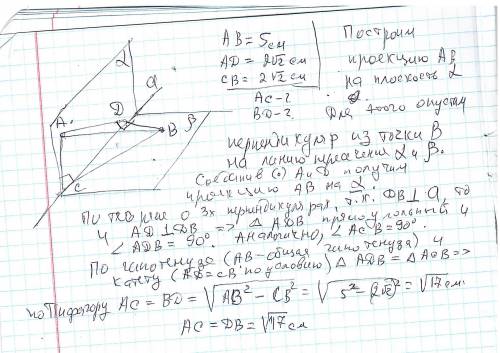 AB = 5 см
AD = 2√2 см
CB = 2√2 см
AC - ?
BD - ?
Построим
проекцию AB
на плоскость α
Для этого опустим
перпендикуляр из точки B
на линию пресечения α и β.
Соединив (·) A и D получим
проекцию AB на α.
α
a
A
D
B
β
C
По теореме о 3х перпендикулярах, т.к. DB ⊥ a, то
и AD ⊥ DB => △ADB прямоугольный и
∠ADB = 90°. Аналогично, ∠ACB = 90°
По гипотенузе (AB - общая гипотенуза) и
катету (AD = CB по условию) △ADB = △ACB =>
по Пифагору AC = BD = √AB² - CB² = √5² - (2√2)² = √17 см.
AC = DB = √17 см